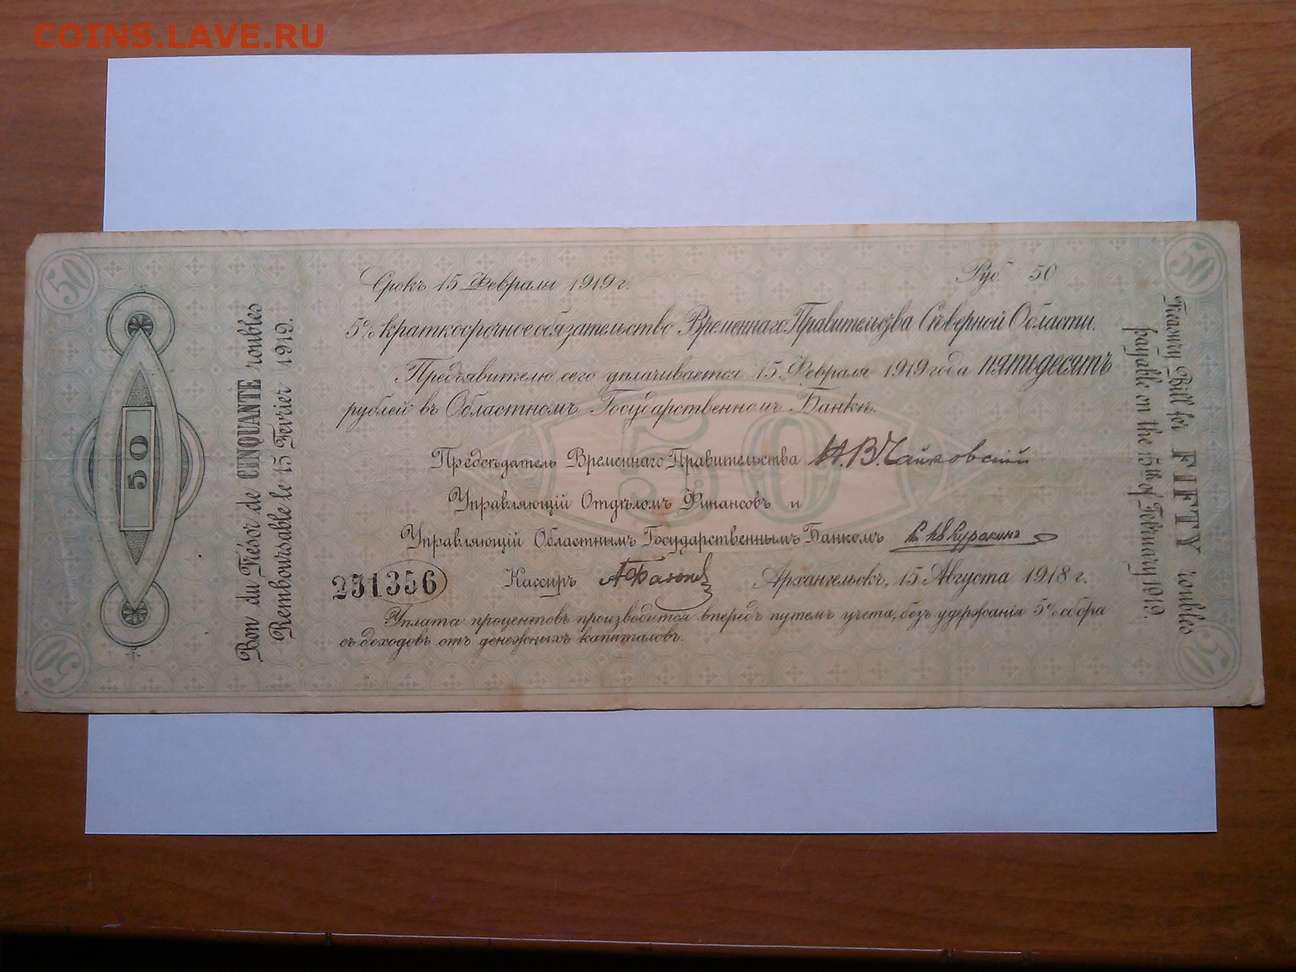 COINS.LAVE.RU
50
50
Срокъ 15 Февраля 1919 г.
Руб. 50
5% краткосрочное обязательство Временнаго Правительства Сѣверной Области.
Предъявителю сего уплачивается 15 Февраля 1919 года пятьдесятъ
рублей въ Областномъ Государственномъ Банкѣ.
50
Предсѣдатель Временнаго Правительства Н.В.Чайковскій
Управляющій Отдѣломъ Финансовъ и
Управляющій Областнымъ Государственнымъ Банкомъ Куракинъ
231356
Кассиръ
Архангельскъ, 15 Августа 1918 г.
Уплата процентовъ производится впередъ путемъ учета, безъ удержанія 5% сбора
съ доходовъ отъ денежныхъ капиталовъ.
50
Bon du Trésor de CINQUANTE roubles
Remboursable le 15 Fevrier 1919.
Treasury Bill for FIFTY roubles
payable on the 15th of February 1919.
50
50